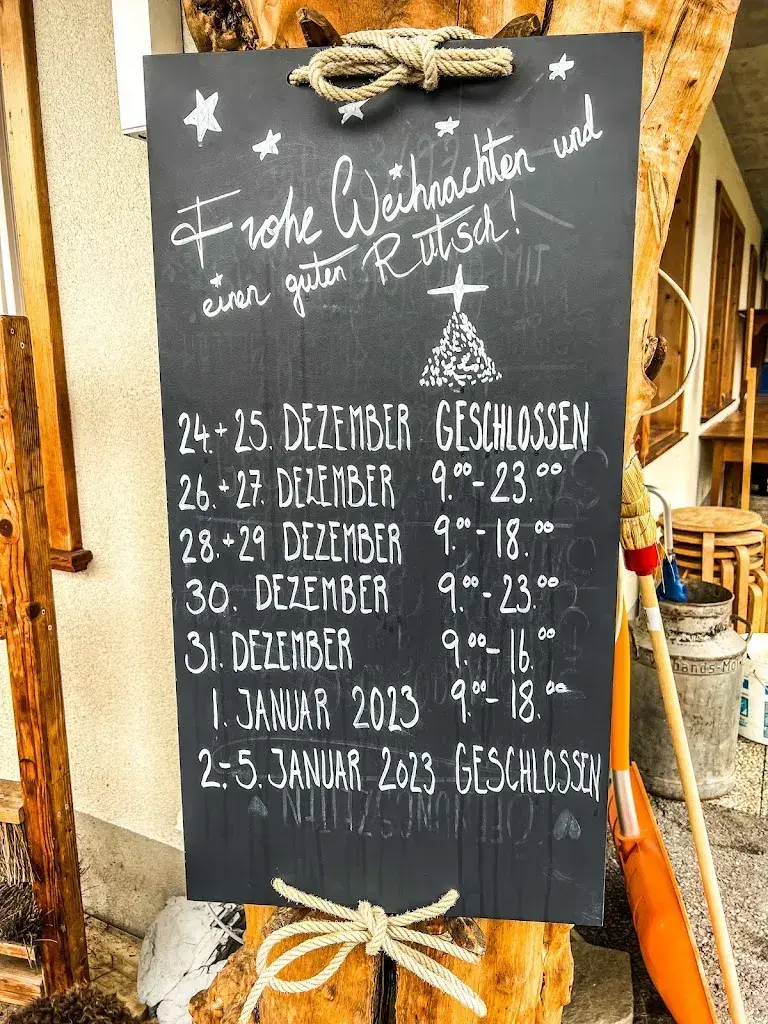 Frohe Weihnachten und
einen guten Rutsch!
24.+25. DEZEMBER GESCHLOSSEN
26.+27. DEZEMBER 9.00-23.00
28.+29 DEZEMBER 9.00-18.00
30. DEZEMBER 9.00-23.00
31. DEZEMBER 9.00-16.00
1. JANUAR 2023 9.00-18.00
2.-5. JANUAR 2023 GESCHLOSSEN